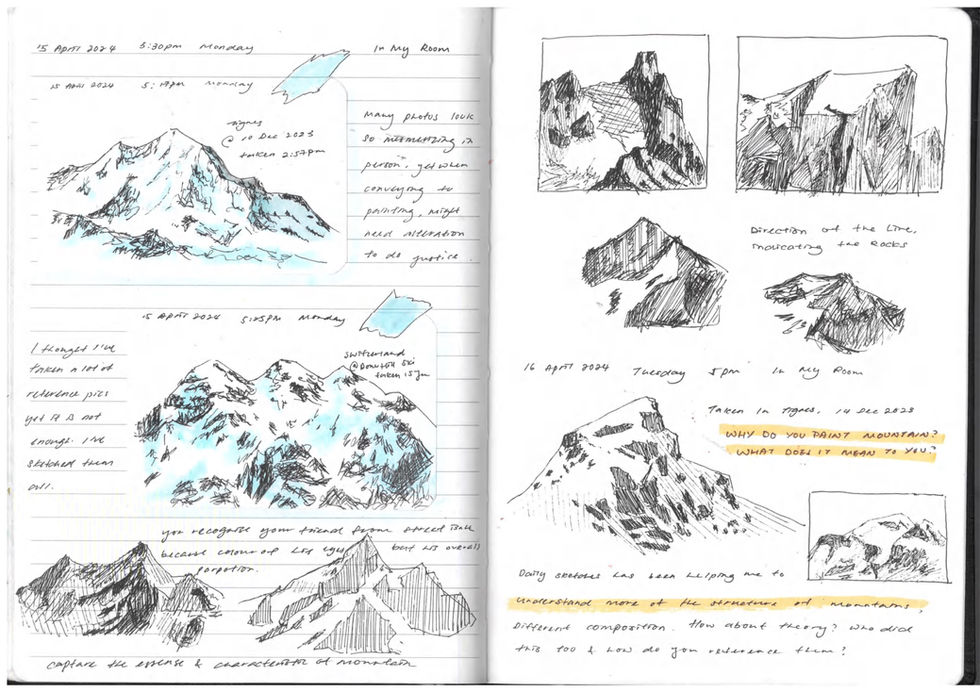 15 April 2024 5:30pm Monday In My Room
15 April 2024 5:17pm Monday
Tignes
@ 10 Dec 2023
taken 2:57pm
Many photos look
so mesmerizing in
person, yet when
conveying to
painting, might
need alteration
to do justice.
15 April 2024 5:25pm Monday
Switzerland
Ski
taken
I thought I've
taken a lot of
reference pics
yet it is not
enough. I've
sketched them
all.
you recognise your friend from street
because colour of his eyes but his overall
porpotion.
capture the essense & characteristic of mountain
Direction of the Line,
indicating the Rocks
16 April 2024 Tuesday 5pm In My Room
Taken in Tignes, 14 Dec 2023
WHY DO YOU PAINT MOUNTAIN?
WHAT DOES IT MEAN TO YOU?
Daily sketches has been helping me to
understand more of the structure of mountains,
Different composition. How about theory? Who did
this too & how do you reference them?